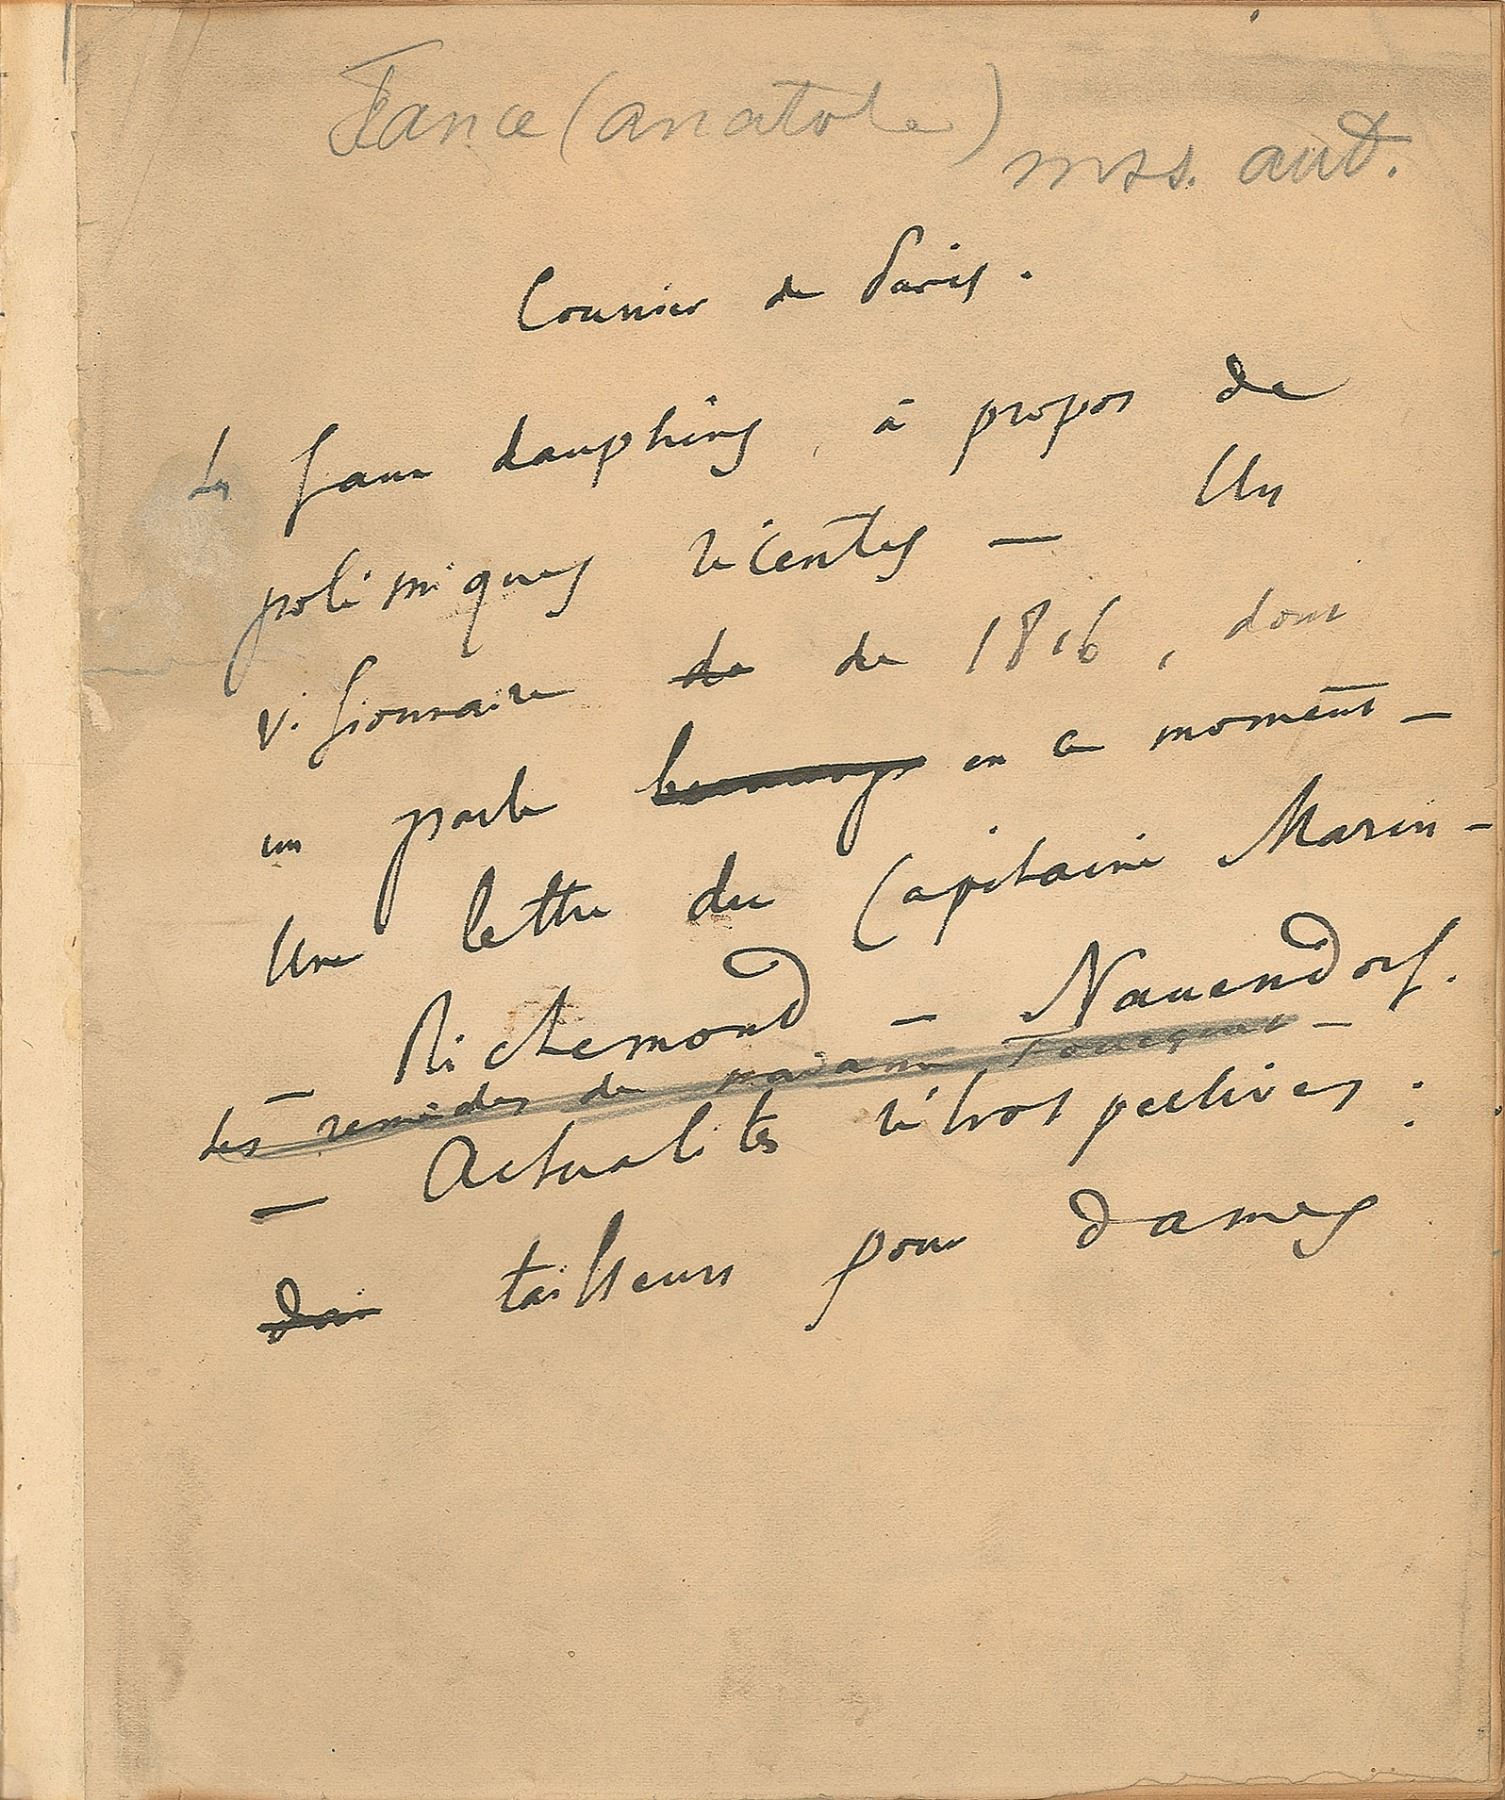 France (Anatole)
mss. aut.
Courrier de Paris.
Les faux dauphins, à propos de
polémiques récentes — Un
visionnaire de de 1816, dont
on parle beaucoup en ce moment —
Une lettre du Capitaine Marin —
— Richemond — Nauendorf.
Les remèdes de madame Fouquet —
— Actualités rétrospectives :
tailleurs pour dames